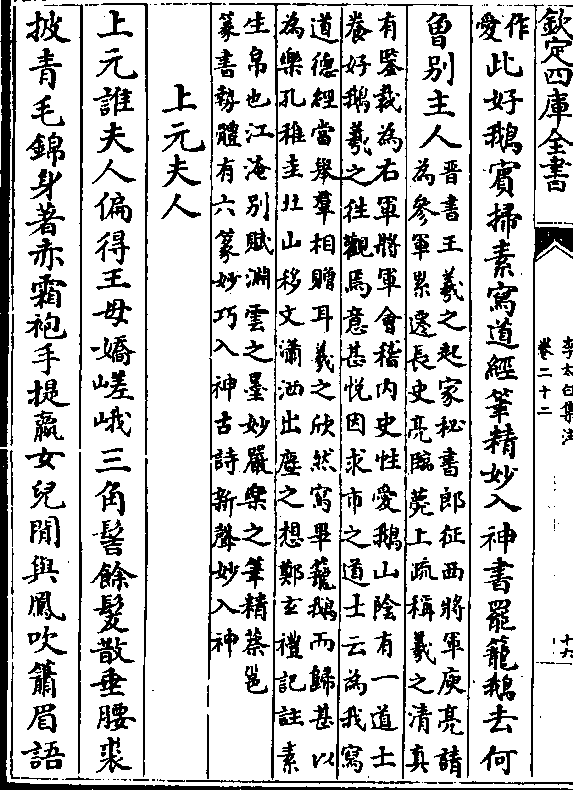 欽定四庫全書
李太白集注
卷二十二
十六
作愛此好鵝賓掃素寫道經筆精妙入神書罷籠鵝去何
曾別主人晉書王羲之起家秘書郎征西將軍庾亮請
為參軍累遷長史亮臨薨上疏稱羲之清真
有鑒裁為右軍將軍會稽內史性愛鵝山陰有一道士
養好鵝羲之往觀焉意甚悦因求市之道士云為我寫
道德經當舉羣相贈耳羲之欣然寫畢籠鵝而歸甚以
為樂孔稚圭北山移文瀟洒出塵之想鄭玄禮記註素
生帛也江淹別賦淵雲之墨妙嚴樂之筆精蔡邕
篆書勢體有六篆妙巧入神古詩新聲妙入神
上元夫人
上元誰夫人偏得王母嬌嵯峨三角髻餘髮散垂腰裘
披青毛錦身著赤霜袍手提嬴女兒閒與鳳吹簫眉語